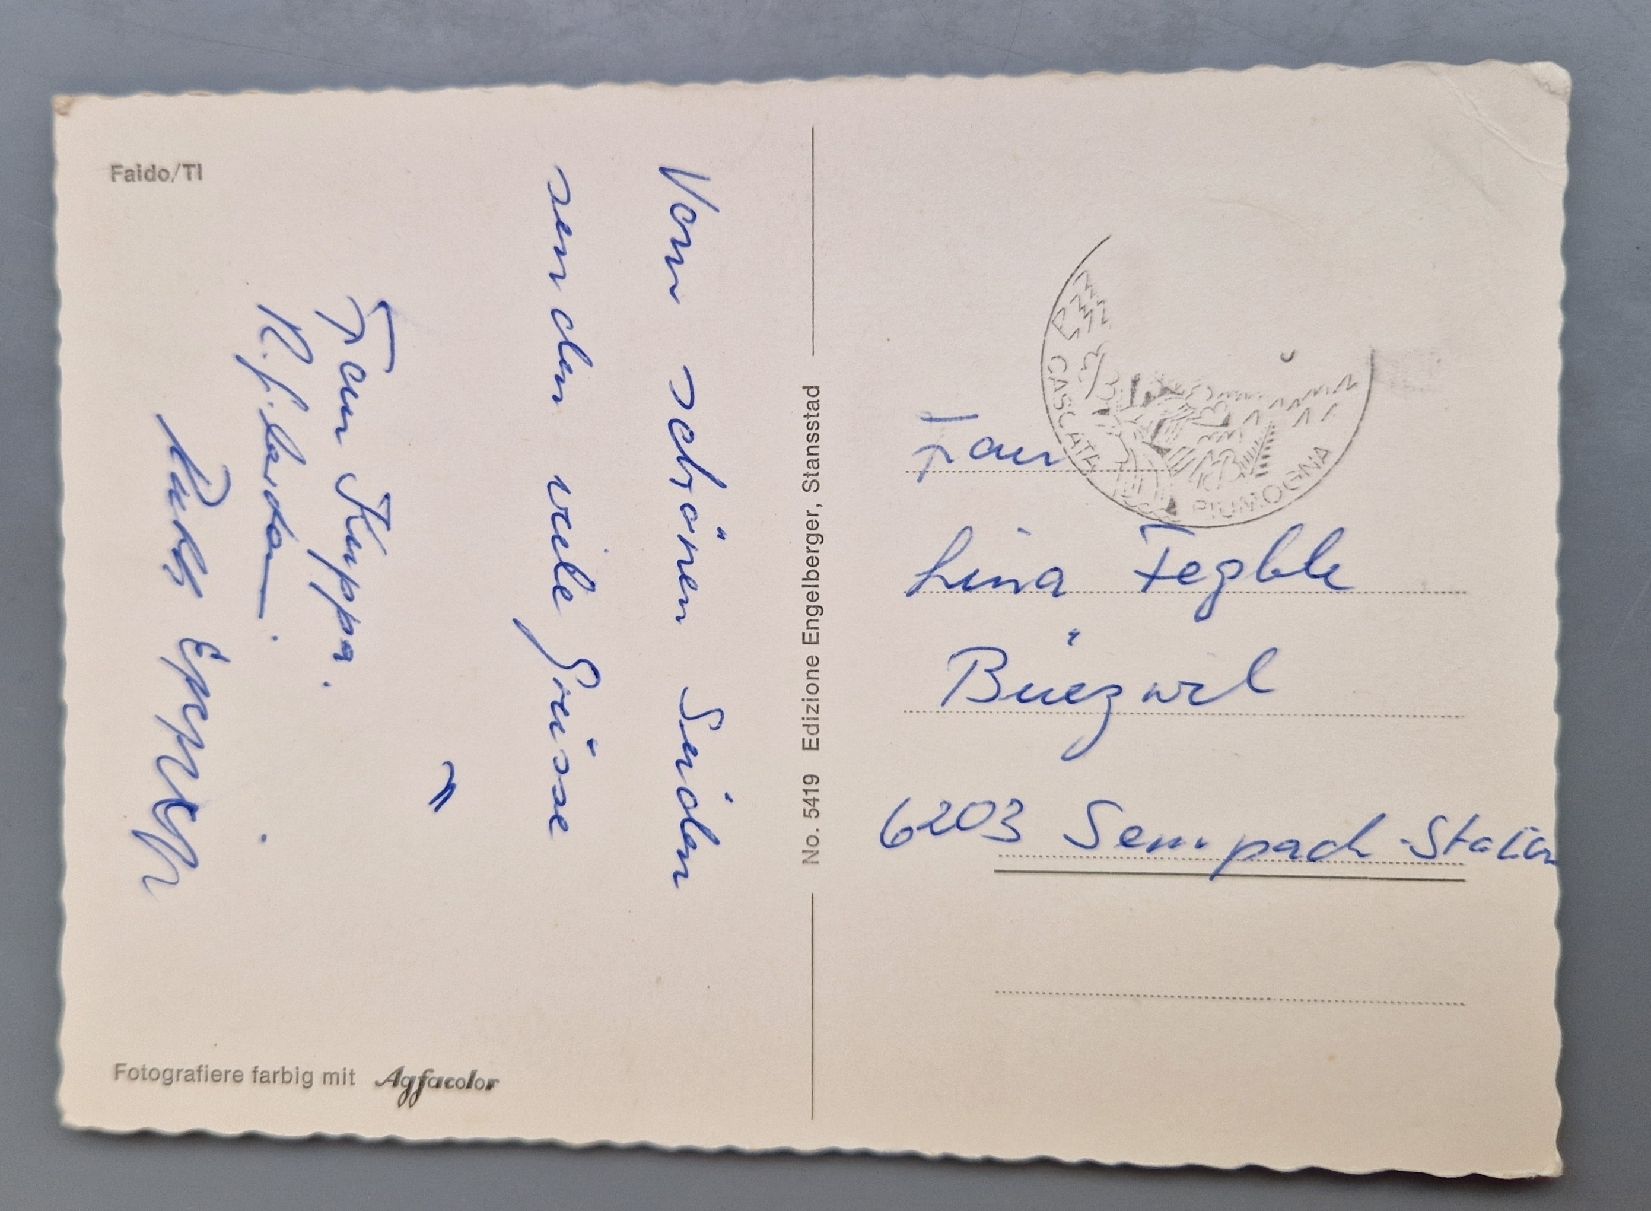 Faido/TI
Vom schönen Süden
senden viele Grüsse
Frau Kuppa.
Ruth
Fotografiere farbig mit Agfacolor
No. 5419 Edizione Engelberger, Stansstad
CASCATA PIUMOGNA
Frau
Lina
Büezwil
6203 Sempach-Station